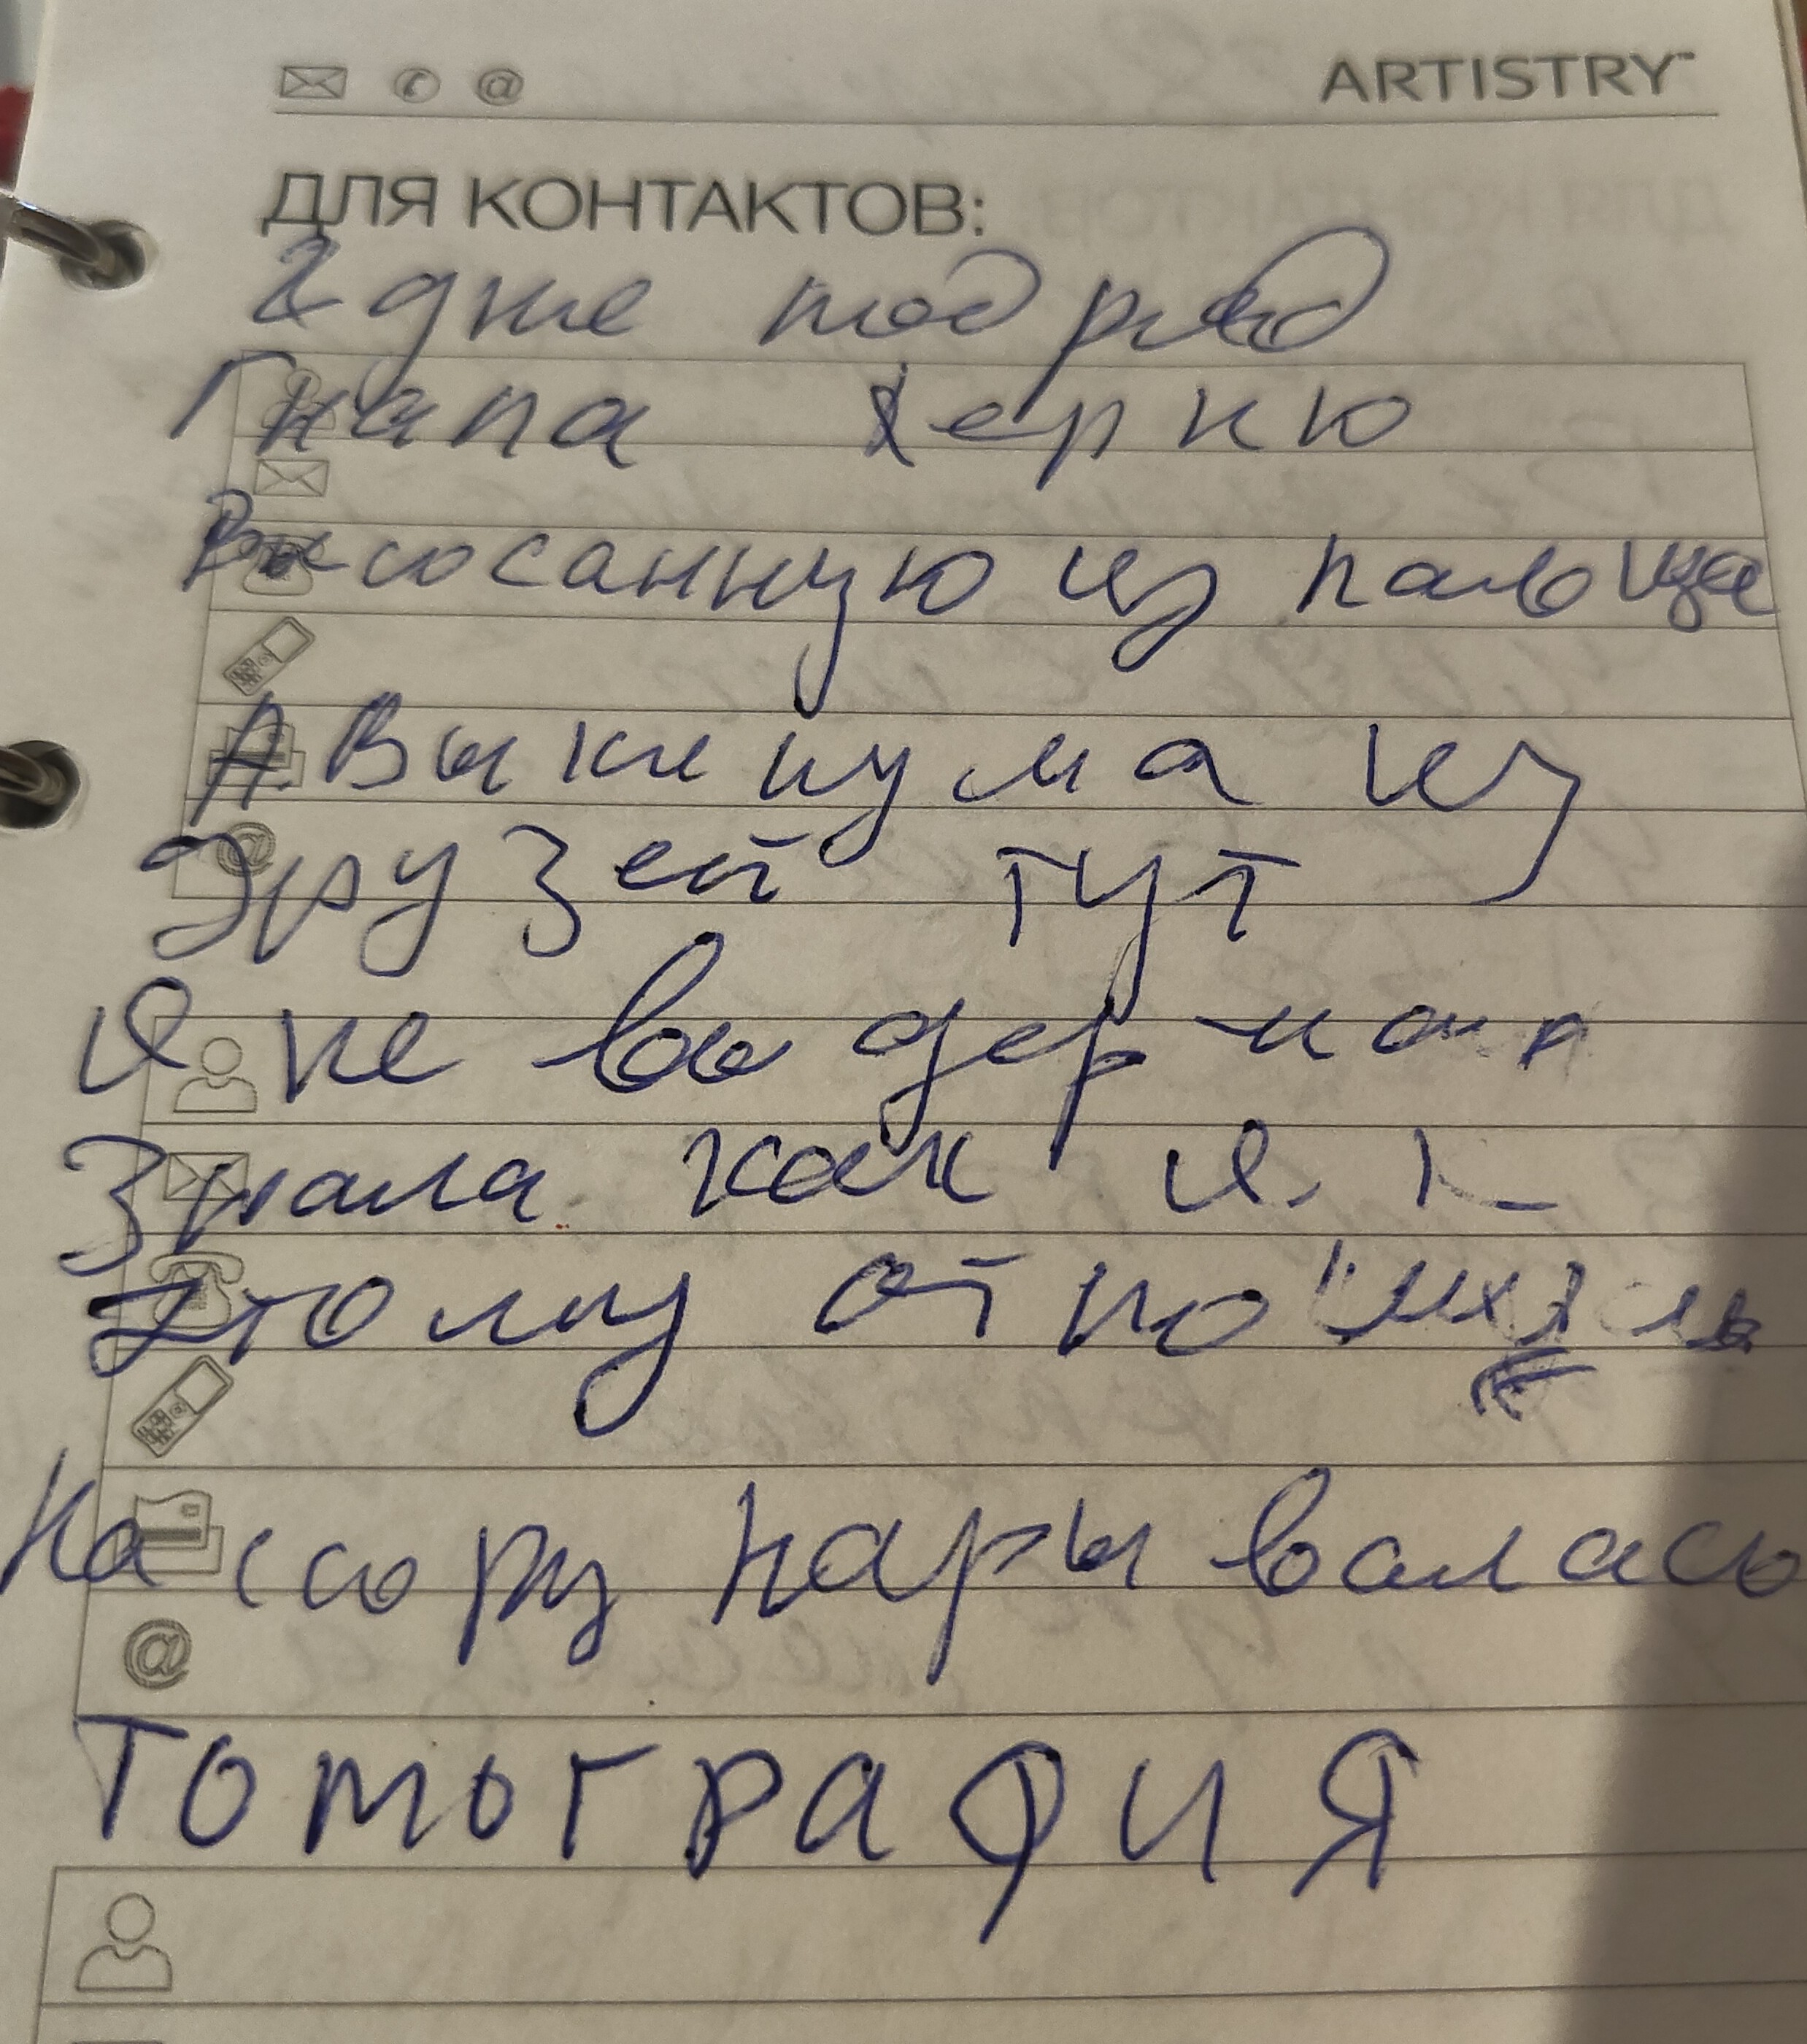 ARTISTRY™
ДЛЯ КОНТАКТОВ:
2 дне подряд
Гнала херню
Высосанную из пальца
А. Выкинула из
друзей тут
я не выдержала
Знала как я к
этому отношусь
На ссору нарывалась
ТОМОГРАФИЯ